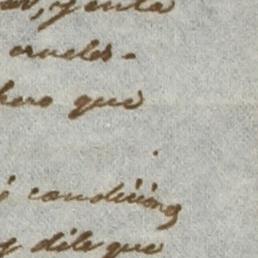 y en la
crueles.
pero que
condición
y dile que